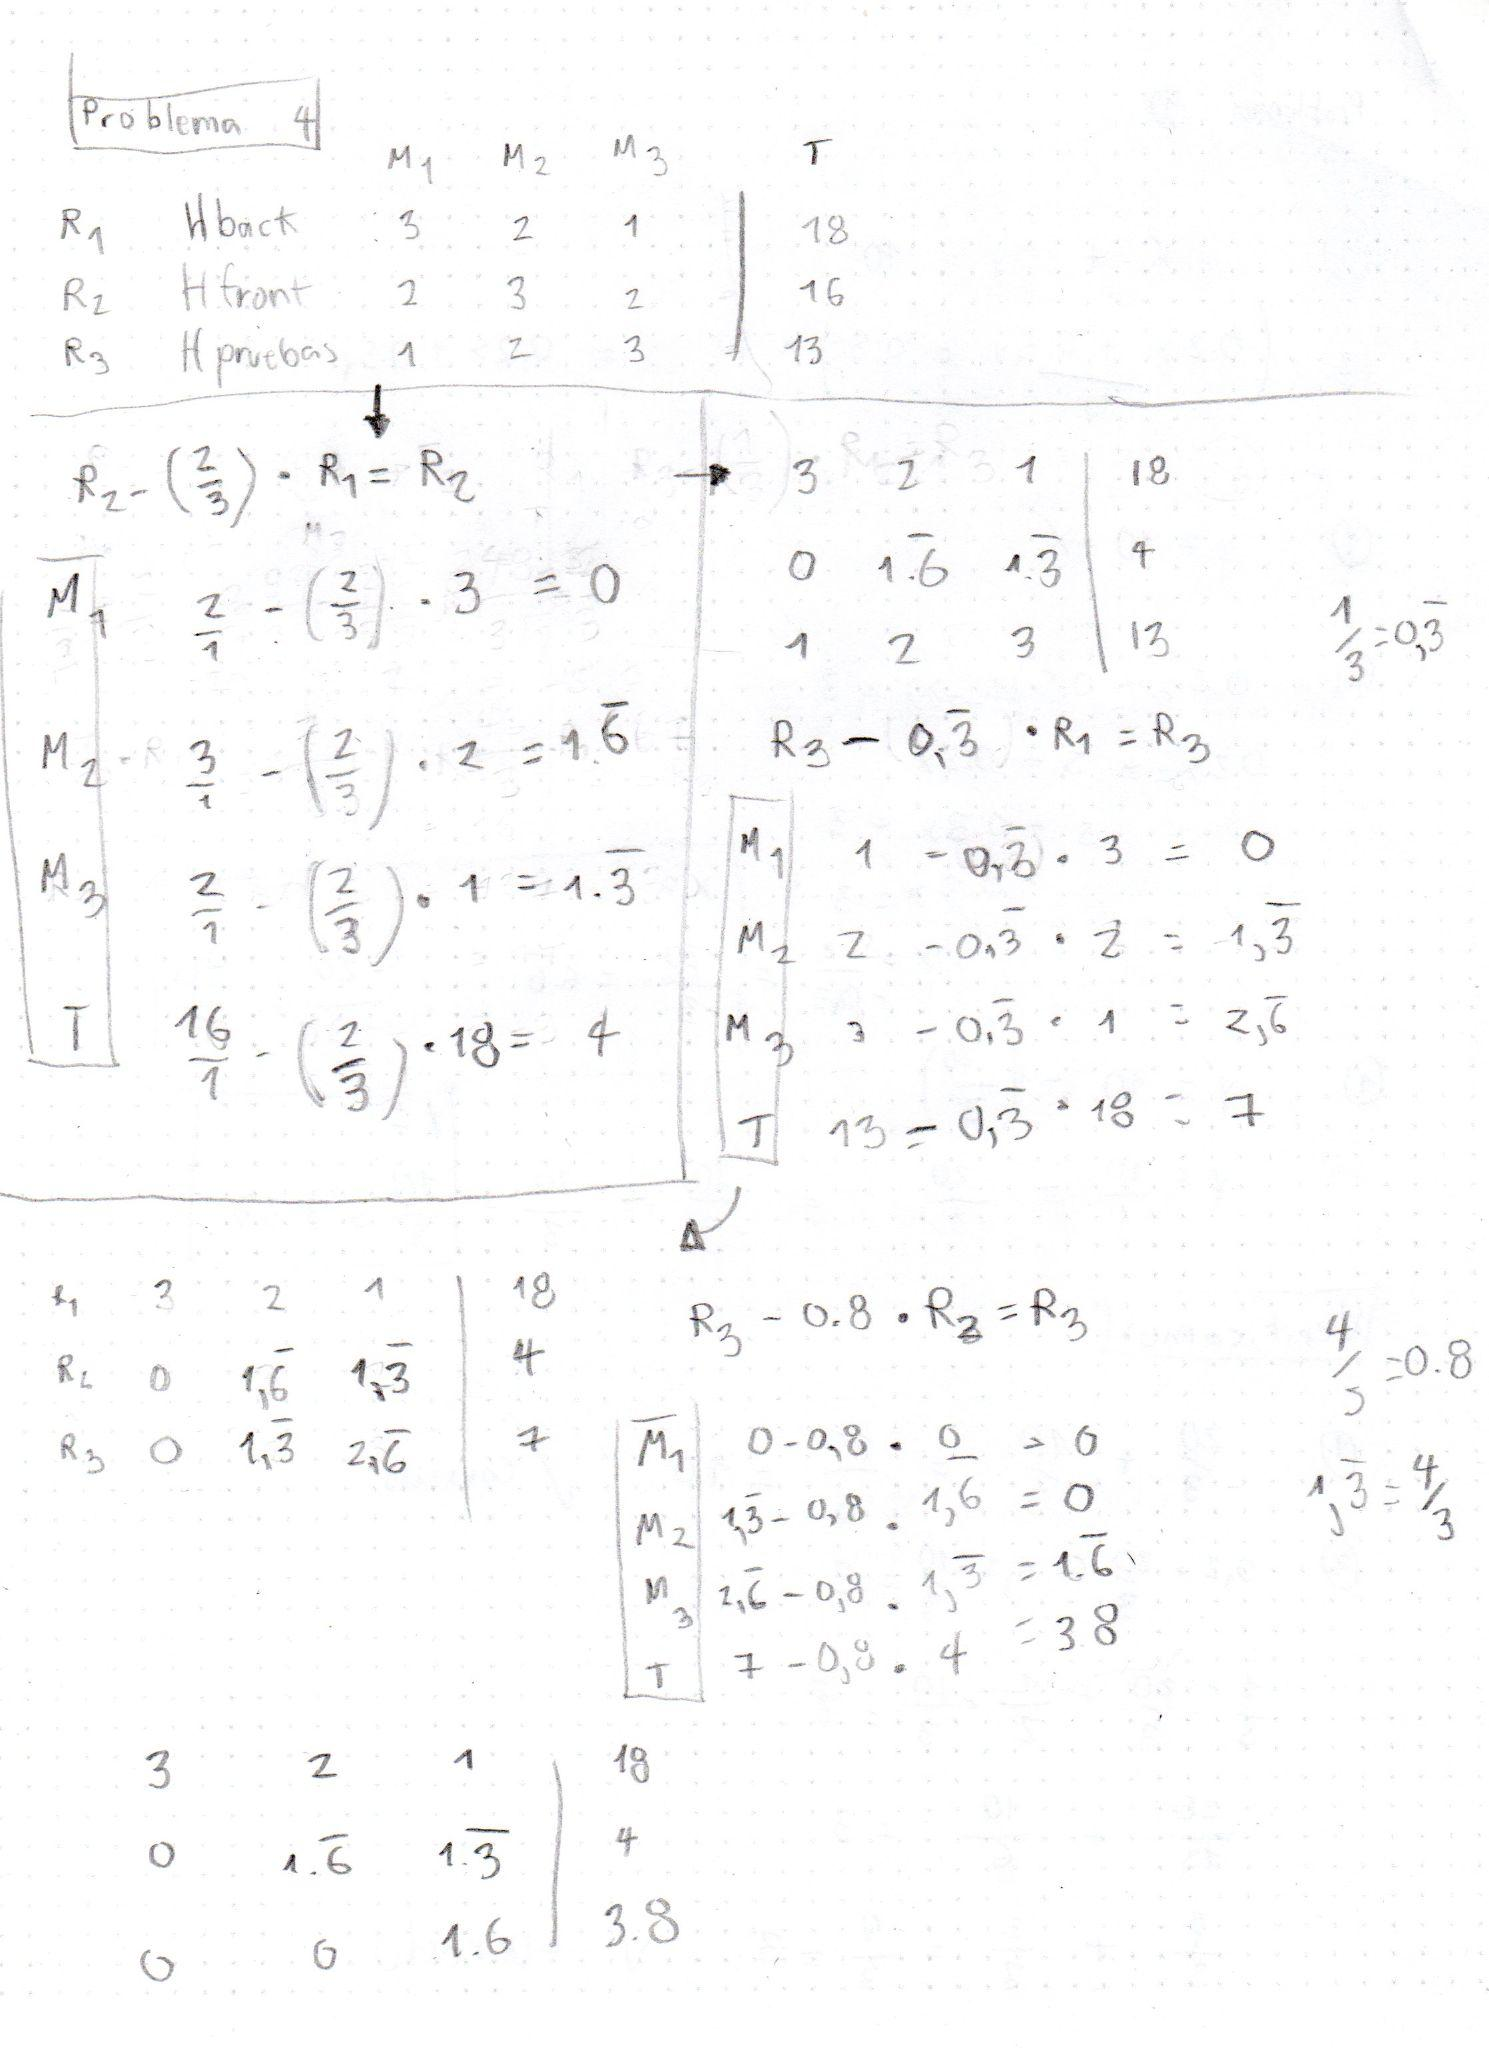 Problema 4
M1 M2 M3 T
R1 Hback 3 2 1 | 18
R2 Hfront 2 3 2 | 16
R3 Hpruebas 1 2 3 | 13
R2 - (2/3) · R1 = R2
M1 2/1 - (2/3) · 3 = 0
M2 3/1 - (2/3) · 2 = 1.6̅
M3 2/1 - (2/3) · 1 = 1.3̅
T 16/1 - (2/3) · 18 = 4
3 2 1 | 18
0 1.6̅ 1.3̅ | 4
1 2 3 | 13
1/3 = 0,3̅
R3 - 0,3̅ · R1 = R3
M1 1 - 0,3̅ · 3 = 0
M2 2 - 0,3̅ · 2 = 1,3̅
M3 3 - 0,3̅ · 1 = 2,6̅
T 13 - 0,3̅ · 18 = 7
R1 3 2 1 | 18
R2 0 1,6̅ 1,3̅ | 4
R3 0 1,3̅ 2,6̅ | 7
R3 - 0.8 · R2 = R3
4/5 = 0.8
M1 0 - 0,8 · 0 = 0
M2 1,3̅ - 0,8 · 1,6 = 0
M3 2,6̅ - 0,8 · 1,3̅ = 1.6̅
T 7 - 0,8 · 4 = 3.8
1,3̅ = 4/3
3 2 1 | 18
0 1.6̅ 1.3̅ | 4
0 0 1.6 | 3.8